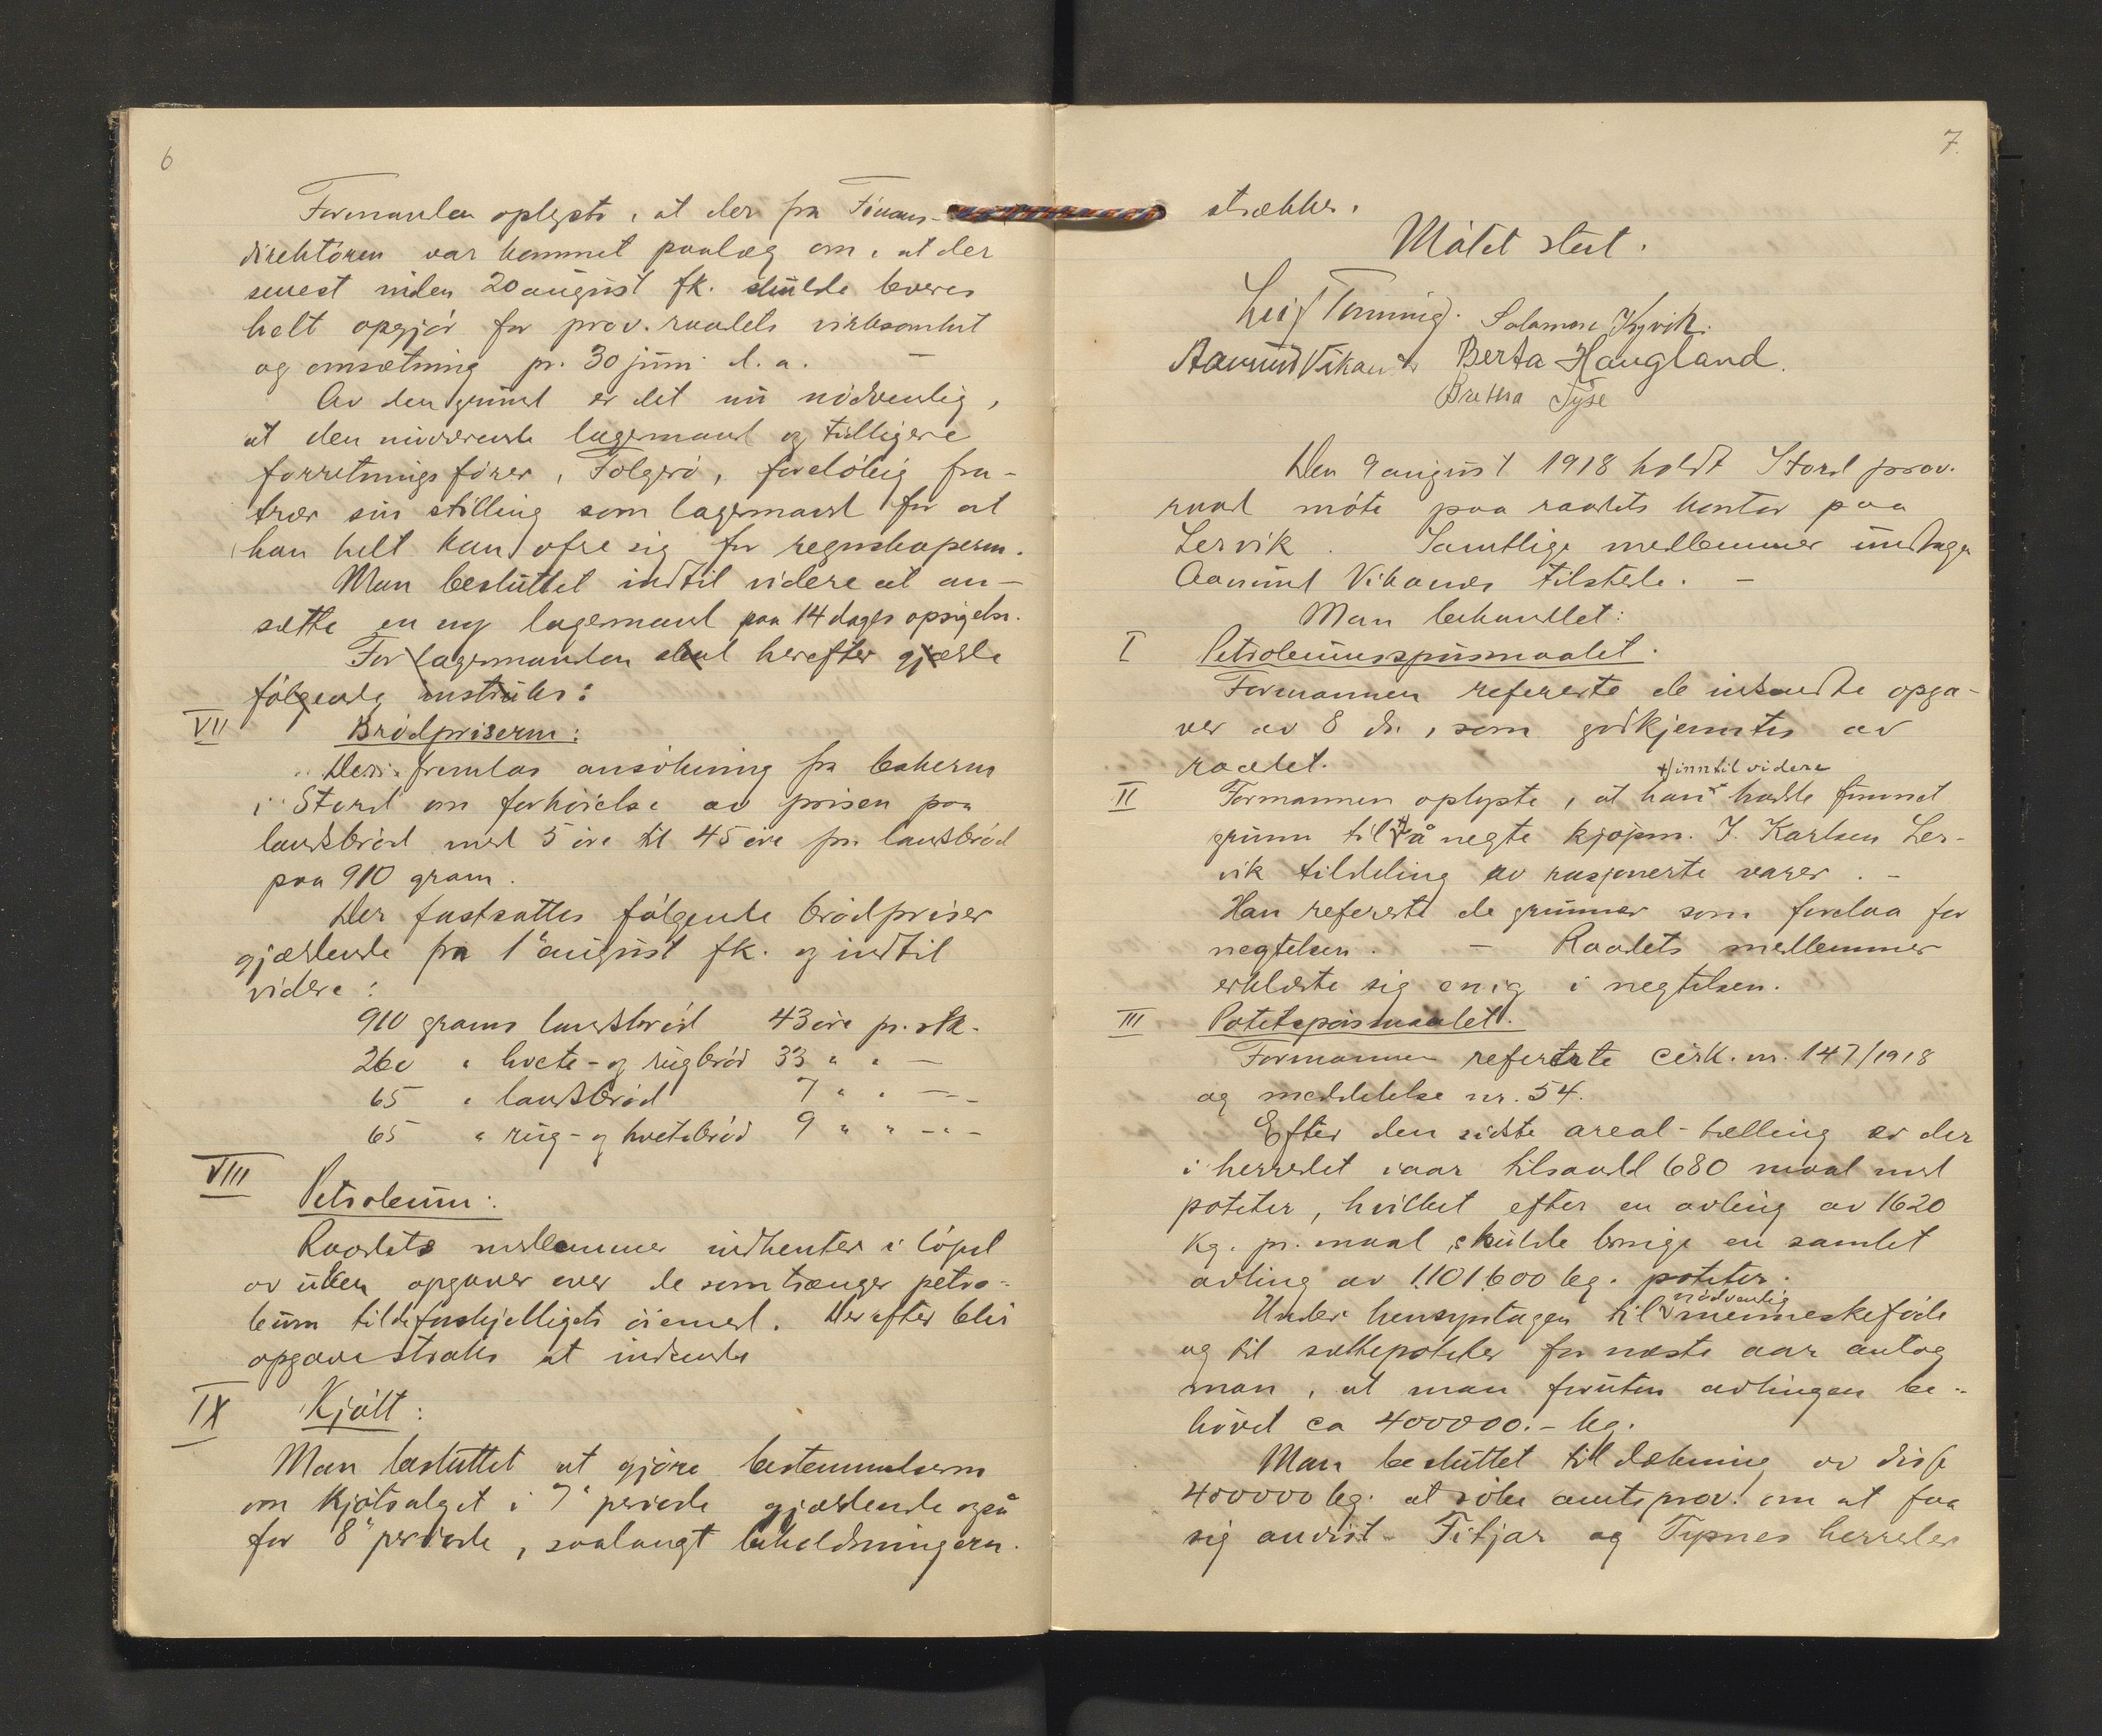 6
Formanden oplyste, at der fra Finans-
direktören var kommet paalæg om, at der
senest inden 20 august fk. skulde leveres
helt opgjör for prov.raadets virksomhet
og omsætning pr. 30 juni d.a. —
Av den grund er det nu nödvendig,
at den nuværende lagermand og tidligere
forretningsförer, Folgerö, foreløbig fra-
træer sin stilling som lagermand for at
han helt kan ofre sig for regnskaperne.
Man besluttet indtil videre at an-
sætte en ny lagermand paa 14 dages opsigelse.
For lagermanden skal herefter gjælde
følgende instruks:
VII
Brödpriserne:
Der fremlaa ansökning fra bakerne
i Stord om forhöielse av prisen paa
landsbröd med 5 öre til 45 öre pr. landsbröd
paa 910 gram.
Der fastsattes følgende brödpriser
gjældende fra 1 august fk. og indtil
videre:
910 grams landsbröd 43 öre pr. stk.
260 " hvete- og rugbröd 33 " " —
65 " landsbröd 7 " " — " —
65 " rug- og hvetebröd 9 " " — " —
VIII
Petroleum:
Raadets medlemmer indhenter i löpet
av uken opgaver over de som trænger petro-
leum til de forskjelligste öiemed. Derefter blir
opgave straks at indsende
IX
Kjött:
Man besluttet at gjöre bestemmelserne
om kjötsalget i 7' periode gjældende også
for 8' periode, saalangt beholdningerne
7.
strækker.
Mötet slut.
Leif Tonning. Salamon Kyvik.
Aamund Vikanes Berta Haugland.
Bertha Tyse
Den 9 august 1918 holdt Stord prov.
raad möte paa raadets kontor paa
Lervik. Samtlige medlemmer undtagen
Aamund Vikanes tilstede. —
Man behandlet:
I
Petroleumsspörsmaalet.
Formannen refererte de insendte opga-
ver av 8 ds., som godkjentes av
raadet.
+) inntil videre
II
Formannen oplyste, at han + hadde funnet
grunn til å negte kjøpm. J. Karlsen Ler-
vik tildeling av rasjonerte varer. —
Han refererte de grunner som forelaa for
negtelsen. — Raadets medlemmer
erklærte sig enig i negtelsen.
III
Potetspörsmaalet.
Formannen refererte cirk. nr. 147/1918
og meddelelse nr. 54.
Efter den sidste areal-tælling er der
i herredet iaar tilsaadd 680 maal med
poteter, hvilket efter en avling av 1620
kg. pr. maal, skulde bringe en samlet
avling av 1.101.600 kg. poteter.
nödvendig
Under hensyntagen til menneskeföde
og til sættepoteter for næste aar antog
man, at man foruten avlingen be-
hövet ca 400000.- kg.
Man besluttet til dækning av disse
400000 kg. at söke amtsprov. om at faa
sig anvist Fitjar og Tysnes herreder